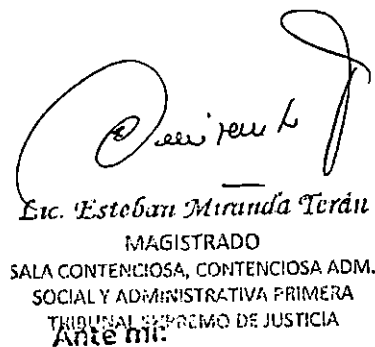 Lic. Esteban Miranda Terán
MAGISTRADO
SALA CONTENCIOSA, CONTENCIOSA ADM.
SOCIAL Y ADMINISTRATIVA PRIMERA
TRIBUNAL SUPREMO DE JUSTICIA
Ante mí: